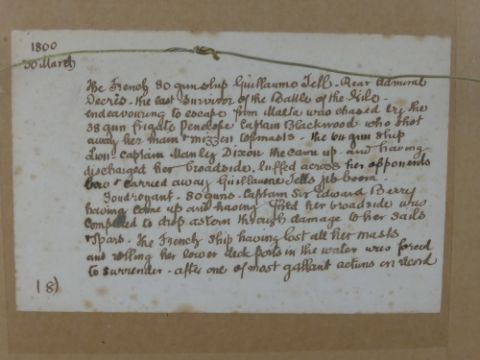 1800
30 March
The French 80 gun ship Guillaume Tell - Rear Admiral
Decrès - the last survivor of the Battle of the Nile -
endeavouring to escape from Malta was chased by the
38 gun frigate Penelope Captain Blackwood who shot
away her main & mizzen topmasts - the 64 gun ship
Lion Captain Manley Dixon then came up and having
discharged her broadside, luffed across her opponents
bow & carried away Guillaume Tells jib boom
Foudroyant - 80 guns - Captain Sir Edward Berry
having come up and having fired her broadside was
compelled to drop astern through damage to her sails
& spars - The French Ship having lost all her masts
and rolling her lower deck ports in the water was forced
to surrender - after one of most gallant actions on record
(8)